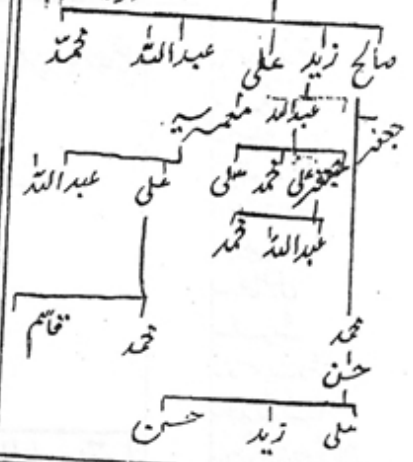 صالح زید علی عبداللہ محمد
جعفر عبداللہ معمر
جعفر علی محمد علی علی عبداللہ
عبداللہ محمد
محمد محمد قاسم
حسن
علی زید حسن